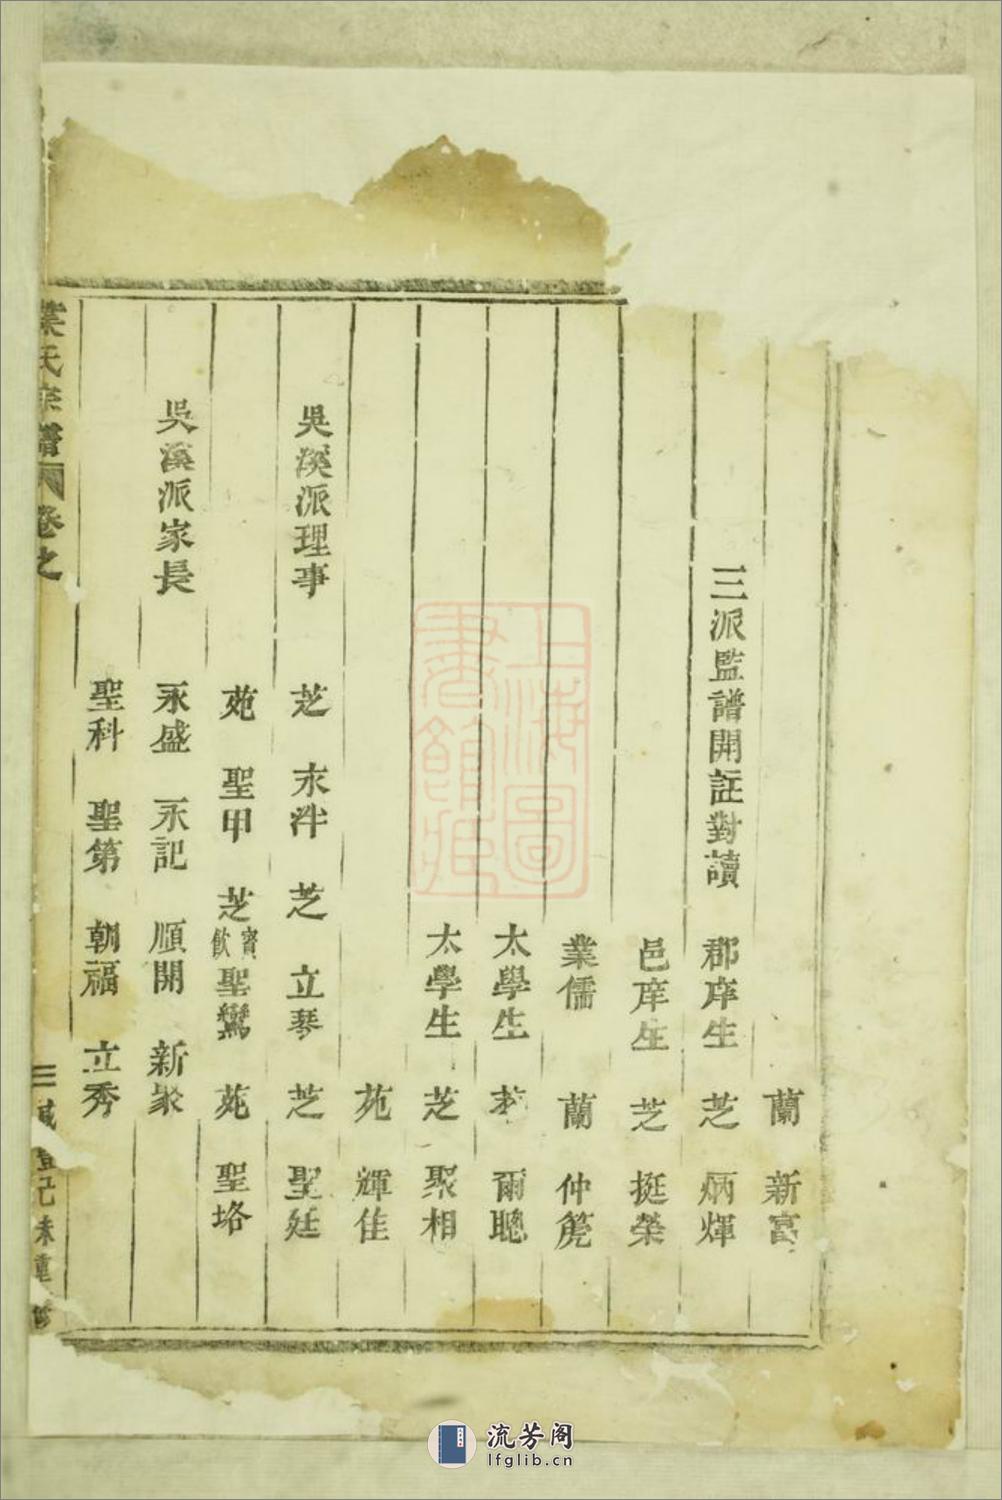 蘭 新富
三派監譜開註對讀 郡庠生 芝 炳輝
邑庠生 芝 挺榮
業儒 蘭 仲箎
太學生 爾聰
太學生 芝 聚相
苑 輝佳
吳溪派理事 芝 永泮 芝 立琴 芝 聖廷
苑 聖甲 芝 飲賓 聖鸞 苑 聖垎
吳溪派家長 永盛 永記 順開 新聚
聖科 聖第 朝福 立秀
葉氏宗譜 卷之 三 己未重修
上海圖書館藏
流芳阁
lfglib.cn